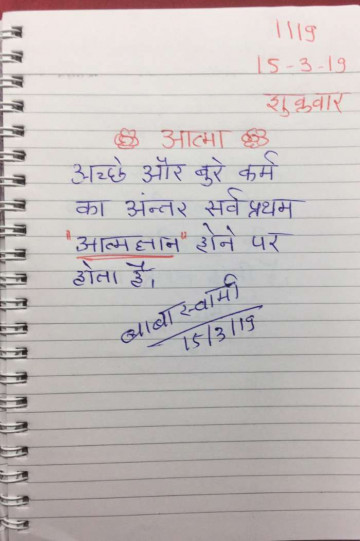 1119
15-3-19
शुक्रवार
आत्मा
अच्छे और बुरे कर्म
का अंन्तर सर्व प्रथम
"आत्मज्ञान" होने पर
होता है,
बाबा स्वामी
15/3/19